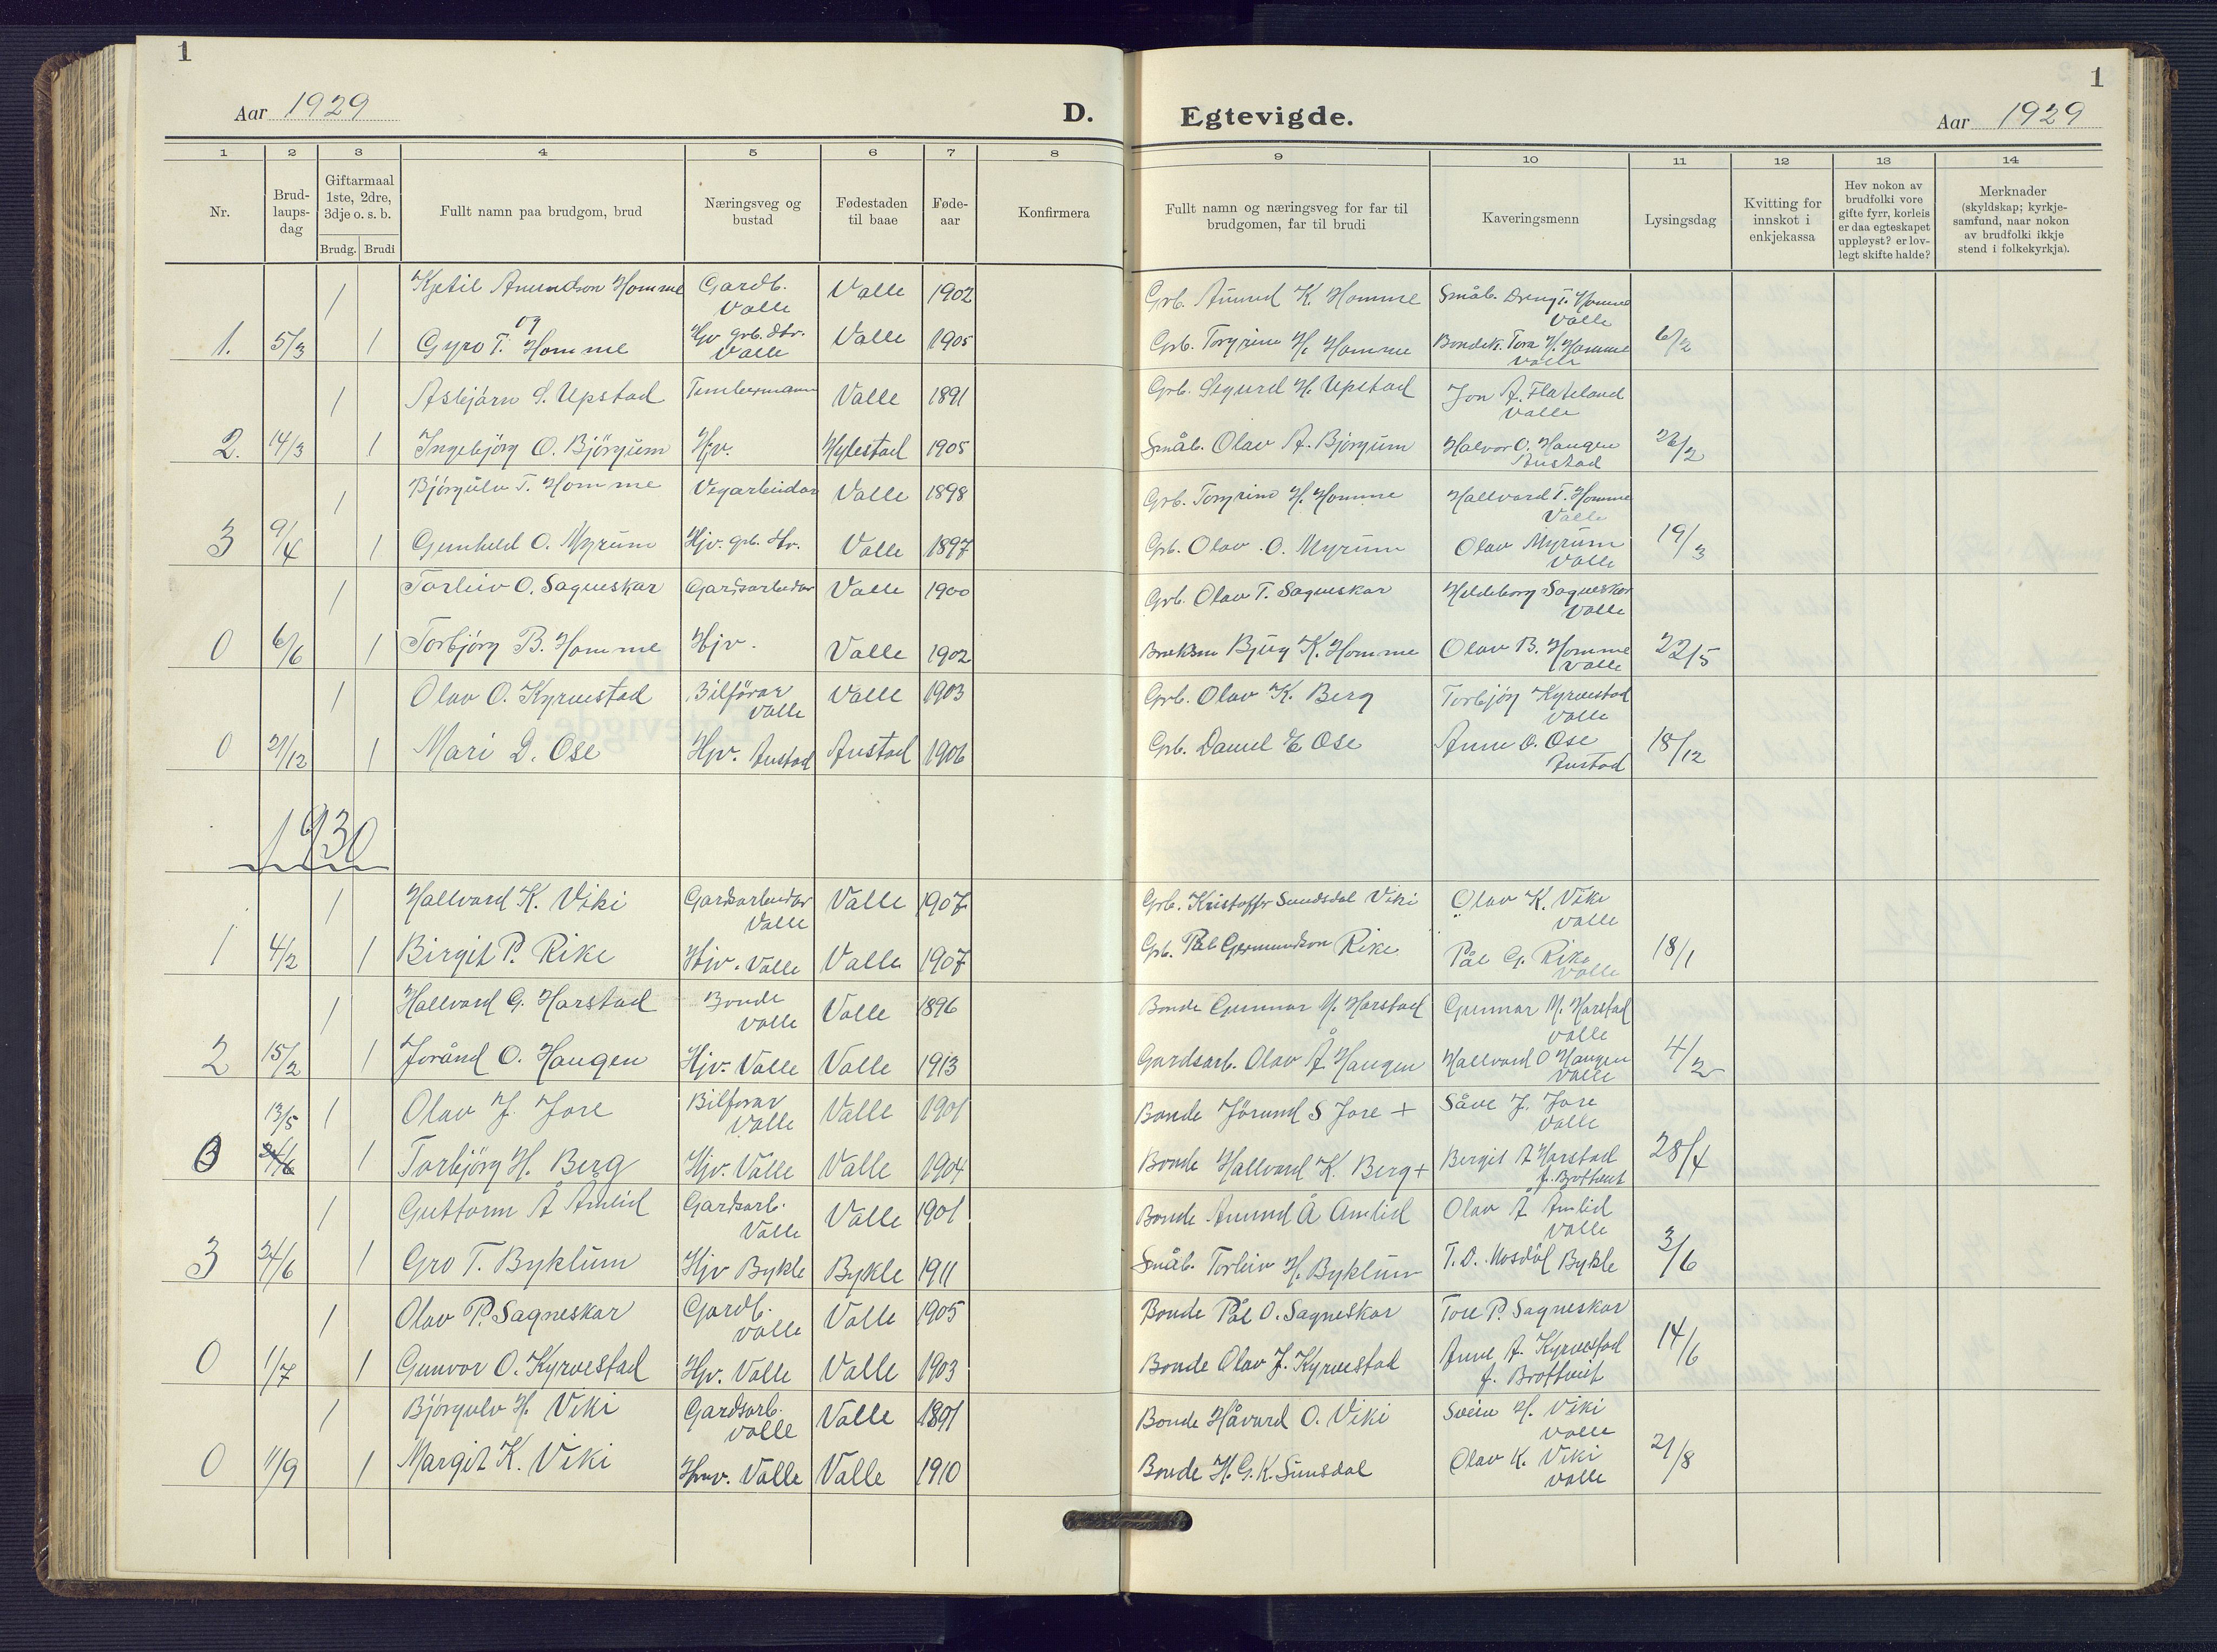 1
Aar 1929
D. Egtevigde.
Aar 1929
1
1 2 3 4 5 6 7 8 9 10 11 12 13 14
Nr.
Brud-
laups-
dag
Giftarmaal
1ste, 2dre,
3dje o. s. b.
Brudg. Brudi
Fullt namn paa brudgom, brud
Næringsveg og
bustad
Fødestaden
til baae
Føde-
aar
Konfirmera
Fullt namn og næringsveg for far til
brudgomen, far til brudi
Kaveringsmenn
Lysingsdag
Kvitting for
innskot i
enkjekassa
Hev nokon av
brudfolki vore
gifte fyrr, korleis
er daa egteskapet
uppløyst? er lov-
legt skifte halde?
Merknader
(skyldskap; kyrkje-
samfund, naar nokon
av brudfolki ikkje
stend i folkekyrkja).
1 Kjetil Amundson Homme Gardb. Valle Valle 1902 Grb. Åmund K. Homme Småb. Dreng T. Homme Valle
og
1. 5/3 1 Gyro T. Homme Hjv grb. dtr. Valle Valle 1905 Grb. Torgrim H. Homme Bondek. Tora H. Homme Valle 6/2
1 Asbjörn S. Upstad Tembermann Valle 1891 Grb. Sigurd H. Upstad Jon A. Flateland Valle
2. 14/3 1 Ingebjörg O. Björgum Hjv. Hylestad 1905 Småb. Olav A. Björgum Halvor O. Haugen Austad 26/2
1 Björgulv T. Homme Vegarbeidar Valle 1898 Grb. Torgrim H. Homme Hallvard T. Homme Valle
3 9/4 1 Gunhild O. Myrum Hjv. grb. dtr. Valle 1897 Grb. Olav O. Myrum Olav Myrum Valle 19/3
1 Torleiv O. Sagneskar Gardsarbeidar Valle 1900 Grb. Olav T. Sagneskar Hildeborg Sagneskar Valle
0 6/6 1 Torbjörg B. Homme Hjv. Valle 1902 Bjug K. Homme Olav B. Homme Valle 22/5
1 Olav O. Kyrvestad Bilförar Valle Valle 1903 Grb. Olav K. Berg Torbjörg Kyrvestad Valle
0 21/12 1 Mari D. Ose Hjv. Austad Austad 1906 Grb. Daniel E Ose Anne O. Ose Austad 18/12
1930
1 Hallvard K. Viki Gardsarbeidar Valle Valle 1907 Grb. Kristoffer Sundsdal Viki Olav K. Viki Valle
1 4/2 1 Birgit P. Rike Hjv. Valle Valle 1907 Grb. Pål Germundson Rike Pål G. Rike Valle 18/1
1 Hallvard G. Harstad Bonde Valle Valle 1896 Bonde Gunnar M. Harstad Gunnar M. Harstad Valle
2 15/2 1 Jorånd O. Haugen Hjv. Valle Valle 1913 Gardsarb. Olav Å Haugen Hallvard O Haugen Valle 4/2
13/5 1 Olav J. Jore Bilförar Valle Valle 1901 Bonde Jörund S Jore + Såve J. Jore Valle
0 24/6 1 Torbjörg H. Berg Hjv. Valle Valle 1904 Bonde Hallvard K. Berg + Bergit A Harstad f. Brottveit 28/4
1 Guttorm Å Åmlid Gardsarb. Valle Valle 1901 Bonde Åmund Å Åmlid Olav Å Åmlid Valle
3 24/6 1 Gro T. Byklum Hjv Bykle Bykle 1911 Småb. Torleiv H. Byklum T. D. Mosdöl Bykle 3/6
1 Olav P. Sagneskar Gardb. Valle Valle 1905 Bonde Pål O. Sagneskar Tore P. Sagneskar
0 1/7 1 Gunvor O. Kyrvestad Hjv. Valle Valle 1903 Bonde Olav J. Kyrvestad Anne A. Kyrvestad f. Brottveit 14/6
1 Björgulv H. Viki Gardsarb. Valle Valle 1891 Bonde Håvard O. Viki Svein H. Viki Valle
0 11/9 1 Margit K. Viki Valle Valle 1910 Bonde H. G. K. Sunsdal Olav K. Viki Valle 21/8